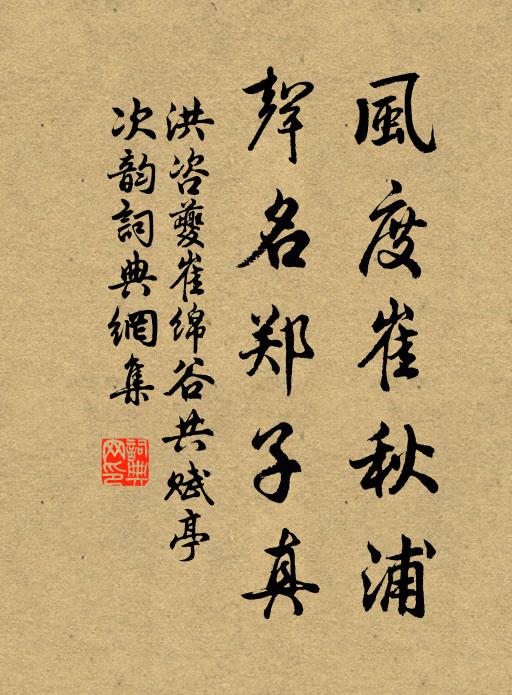 風度崔秋浦
聲名郑子真
洪咨夔崔绵谷共赋亭
次韵詞典網集
詞典網印